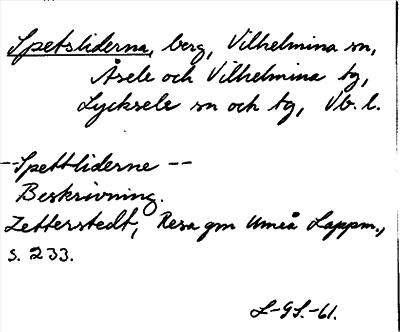 Spetsliderna, berg, Vilhelmina sn,
Åsele och Vilhelmina tg,
Lycksele sn och tg, Vb. l.
--Spettliderne --
Beskrivning.
Zetterstedt, Resa gm Umeå Lappm.,
s. 233.
L-GS.-61.